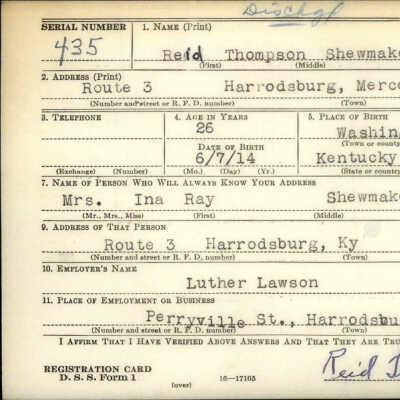 Dischgd
SERIAL NUMBER 1. NAME (Print)
435 Reid Thompson Shewmake
(First) (Middle)
2. ADDRESS (Print)
Route 3 Harrodsburg, Merce
(Number and street or R. F. D. number) (Town)
3. TELEPHONE 4. AGE IN YEARS 5. PLACE OF BIRTH
26 Washin
DATE OF BIRTH (Town or county
6/7/14 Kentucky
(Exchange) (Number) (Mo.) (Day) (Yr.) (State or country
7. NAME OF PERSON WHO WILL ALWAYS KNOW YOUR ADDRESS
Mrs. Ina Ray Shewmake
(Mr., Mrs., Miss) (First) (Middle)
9. ADDRESS OF THAT PERSON
Route 3 Harrodsburg, Ky
(Number and street or R. F. D. number) (Town)
10. EMPLOYER'S NAME
Luther Lawson
11. PLACE OF EMPLOYMENT OR BUSINESS
Perryville St., Harrodsbu
(Number and street or R. F. D. number) (Town)
I AFFIRM THAT I HAVE VERIFIED ABOVE ANSWERS AND THAT THEY ARE TRU
REGISTRATION CARD Reid
D. S. S. Form 1 (over) 16-17105